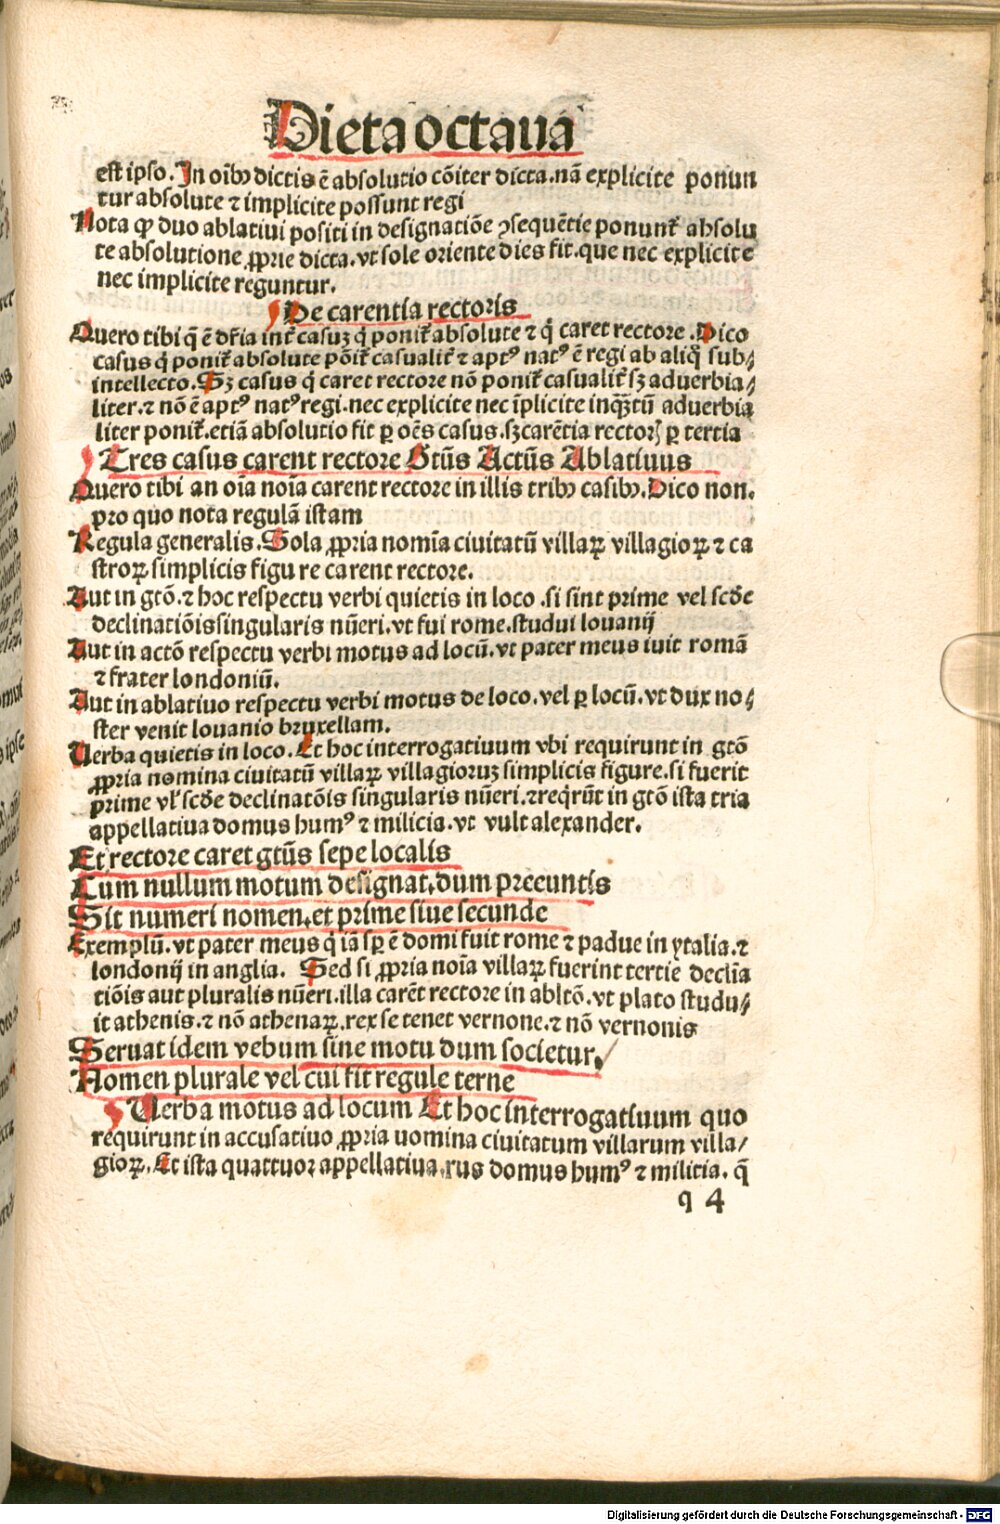 Dieta octaua
est ipso. In oib⁹ dictis ē absolutio cōiter dicta. nā explicite ponun
tur absolute ⁊ implicite possunt regi
Nota ꝙ duo ablatiui positi in designatiōe ↄsequētie ponunt᷑ absolu
te absolutione ꝓprie dicta. vt sole oriente dies fit. que nec explicite
nec implicite reguntur.
De carentia rectoris
Quero tibi q̄ ē dr̄ia int᷑ casuꝫ q̇ ponit᷑ absolute ⁊ q̇ caret rectore. Dico
casus q̇ ponit᷑ absolute pōit᷑ casualit᷑ ⁊ apt⁹ nat⁹ ē regi ab aliq̇ sub⸗
intellecto. Sꝫ casus q̇ caret rectore nō ponit᷑ casualit᷑ sꝫ aduerbia⸗
liter. ⁊ nō ē apt⁹ nat⁹ regi. nec explicite nec īplicite inq̄ꝫtū aduerbia
liter ponit᷑. etiā absolutio fit ꝑ oēs casus. sꝫ carētia rectorꝭ ꝑ tertia
Tres casus carent rectore Gtūs Actūs Ablatiuus
Quero tibi an oīa noīa carent rectore in illis trib⁹ casib⁹. Dico non.
pro quo nota regulā istam
Regula generalis. Sola ꝓpria nomīa ciuitatū villaꝝ villagioꝝ ⁊ ca
stroꝝ simplicis figu re carent rectore.
Aut in gtō. ⁊ hoc respectu verbi quietis in loco. si sint prime vel scđe
declinatiōis singularis nūeri. vt fui rome. studui louanij
Aut in actō respectu verbi motus ad locū. vt pater meus iuit romā
⁊ frater londoniū.
Aut in ablatiuo respectu verbi motus de loco. vel ꝑ locū. vt dux no⸗
ster venit louanio bruxellam.
Uerba quietis in loco. Et hoc interrogatiuum vbi requirunt in gtō
ꝓpria nomina ciuitatū villaꝝ villagioruꝫ simplicis figure. si fuerit
prime vł scđe declinatōis singularis nūeri. ⁊ reqr̄ūt in gtō ista tria
appellatiua domus hum⁹ ⁊ milicia. vt vult alexander.
Et rectore caret gtūs sepe localis
Cum nullum motum designat. dum preeuntis
Sit numeri nomen. et prime siue secunde
Exemplū. vt pater meus q̇ iā sꝑ ē domi fuit rome ⁊ padue in ytalia. ⁊
londonij in anglia. Sed si ꝓpria noīa villaꝝ fuerint tertie declīa
tiōis aut pluralis nūeri. illa carēt rectore in abltō. vt plato studu⸗
it athenis. ⁊ nō athenaꝝ. rex se tenet vernone. ⁊ nō vernonis
Seruat idem vebum sine motu dum societur.
Nomen plurale vel cui fit regule terne
Uerba motus ad locum Et hoc interrogatiuum quo
requirunt in accusatiuo ꝓpria uomina ciuitatum villarum villa/
gioꝝ. Et ista quattuor appellatiua. rus domus hum⁹ ⁊ milicia. q̄
q 4
Digitalisierung gefördert durch die Deutsche Forschungsgemeinschaft - DFG